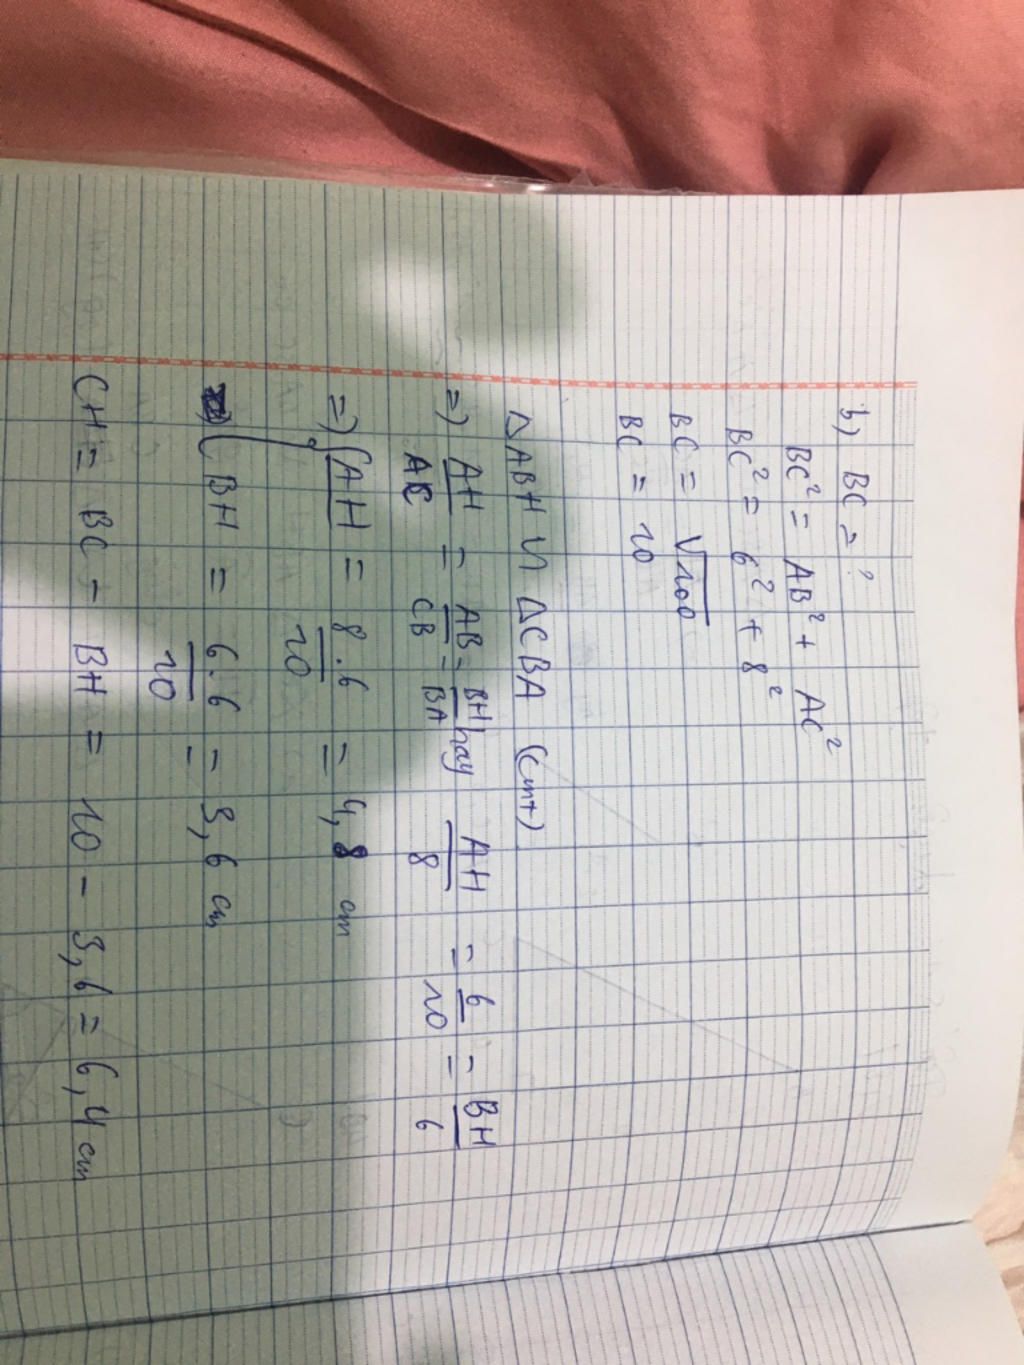 b) BC = ?
BC² = AB² + AC²
BC² = 6² + 8²
BC = √100
BC = 10
△ABH ᔕ △CBA (cmt)
=> AH/AC = AB/CB = BH/BA hay AH/8 = 6/10 = BH/6
=> AH = 8.6/10 = 4,8 cm
BH = 6.6/10 = 3,6 cm
CH = BC - BH = 10 - 3,6 = 6,4 cm